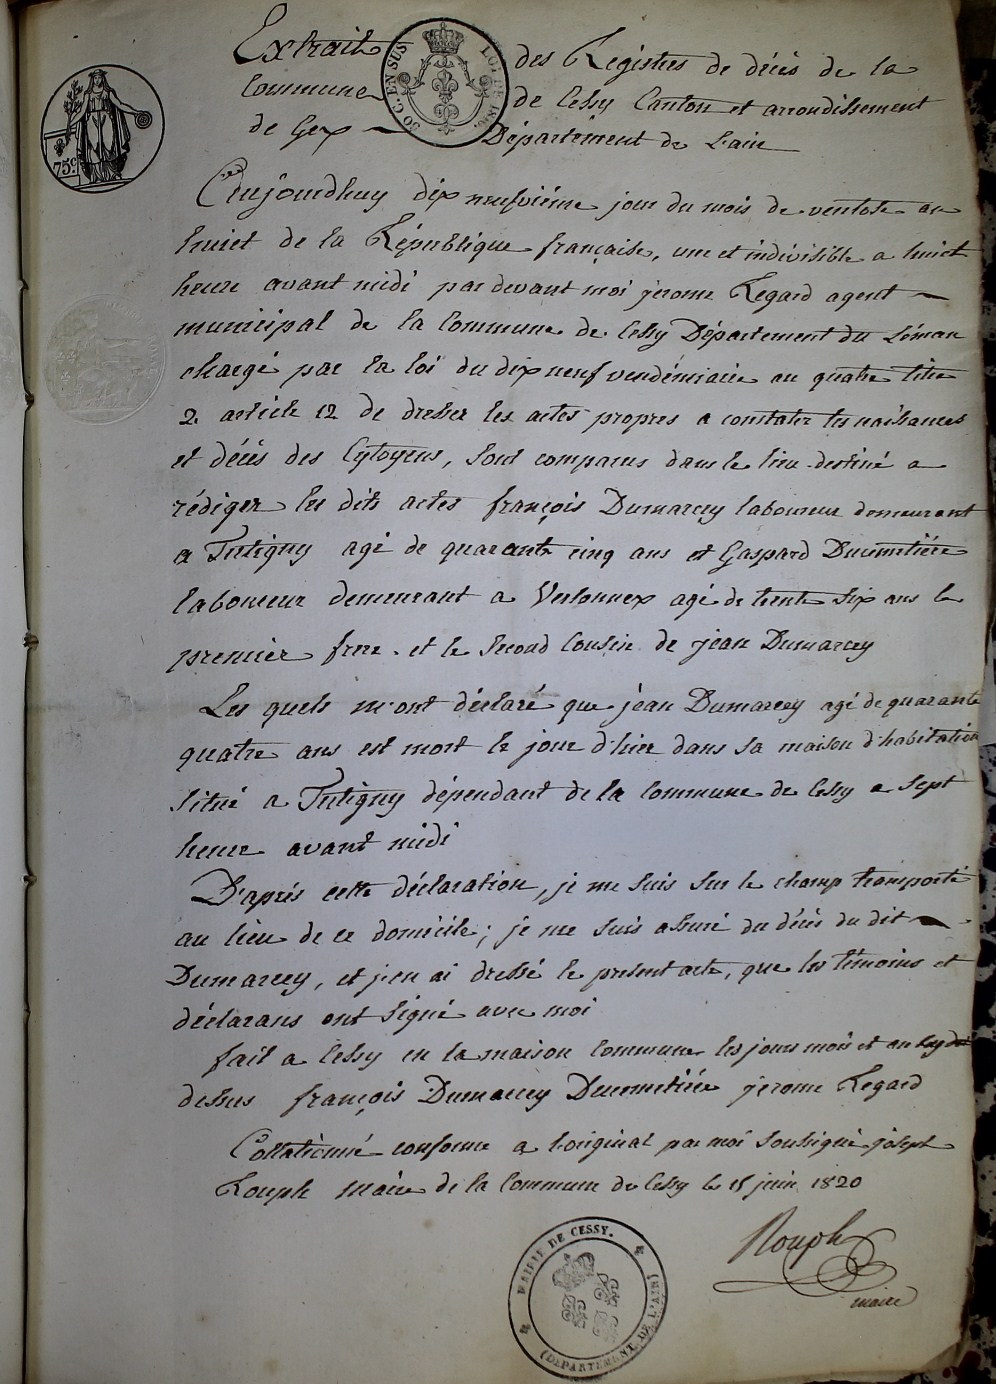 Extrait des Registres de décès de la
Commune de Cessy Canton et arrondissement
de Gex Département de L'ain
30 C. EN SUS
LOI DE
75 c.
Aujourdhuy dix neufvième jour du mois de ventose an
huict de la République française, une et indivisible a huict
heure avant midi par devant moi jerome Regard agent
municipal de la Commune de Cessy Département du Léman
chargé par la loi du dix neuf vendémiaire an quatre titre
2 article 12 de dresser les actes propres a constater les naissances
et décès des Cytoyens, sont comparus dans le lieu destiné a
rédiger les dits actes françois Dumarcey laboureur demeurant
a Tutigny agé de quarante cinq ans et Gaspard Ducimetière
laboureur demeurant a Vesonnex agé de trente six ans le
premier frere et le second Cousin de jean Dumarcey
Les quels m'ont déclaré que jean Dumarcey agé de quarante
quatre ans est mort le jour d'hier dans sa maison d'habitation
situé a Tutigny dépendant de la Commune de Cessy a sept
heure avant midi
D'après cette déclaration, je me suis sur le champ transporté
au lieu de ce domicile; je me suis assuré du décès du dit
Dumarcey, et j'en ai dressé le present acte, que les témoins et
déclarans ont signé avec moi
fait a Cessy en la maison Commune les jours mois et an
dessus françois Dumarcey Ducimetière jerome Regard
Collationné conforme a l'original par moi soussigné joseph
Rouph Maire de la Commune de Cessy le 15 juin 1820
Rouph
maire
MAIRIE DE CESSY.
(DÉPARTEMENT DE L'AIN)